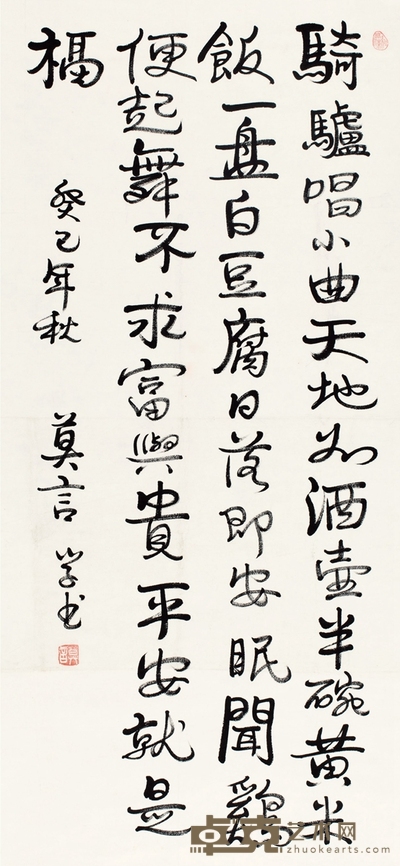 騎驢唱小曲天地如酒壺半碗黃米
飯一盤白豆腐日落即安眠聞鷄
便起舞不求富與貴平安就是
福
癸巳年秋 莫言學書
卓克艺术网
zhuokearts.com